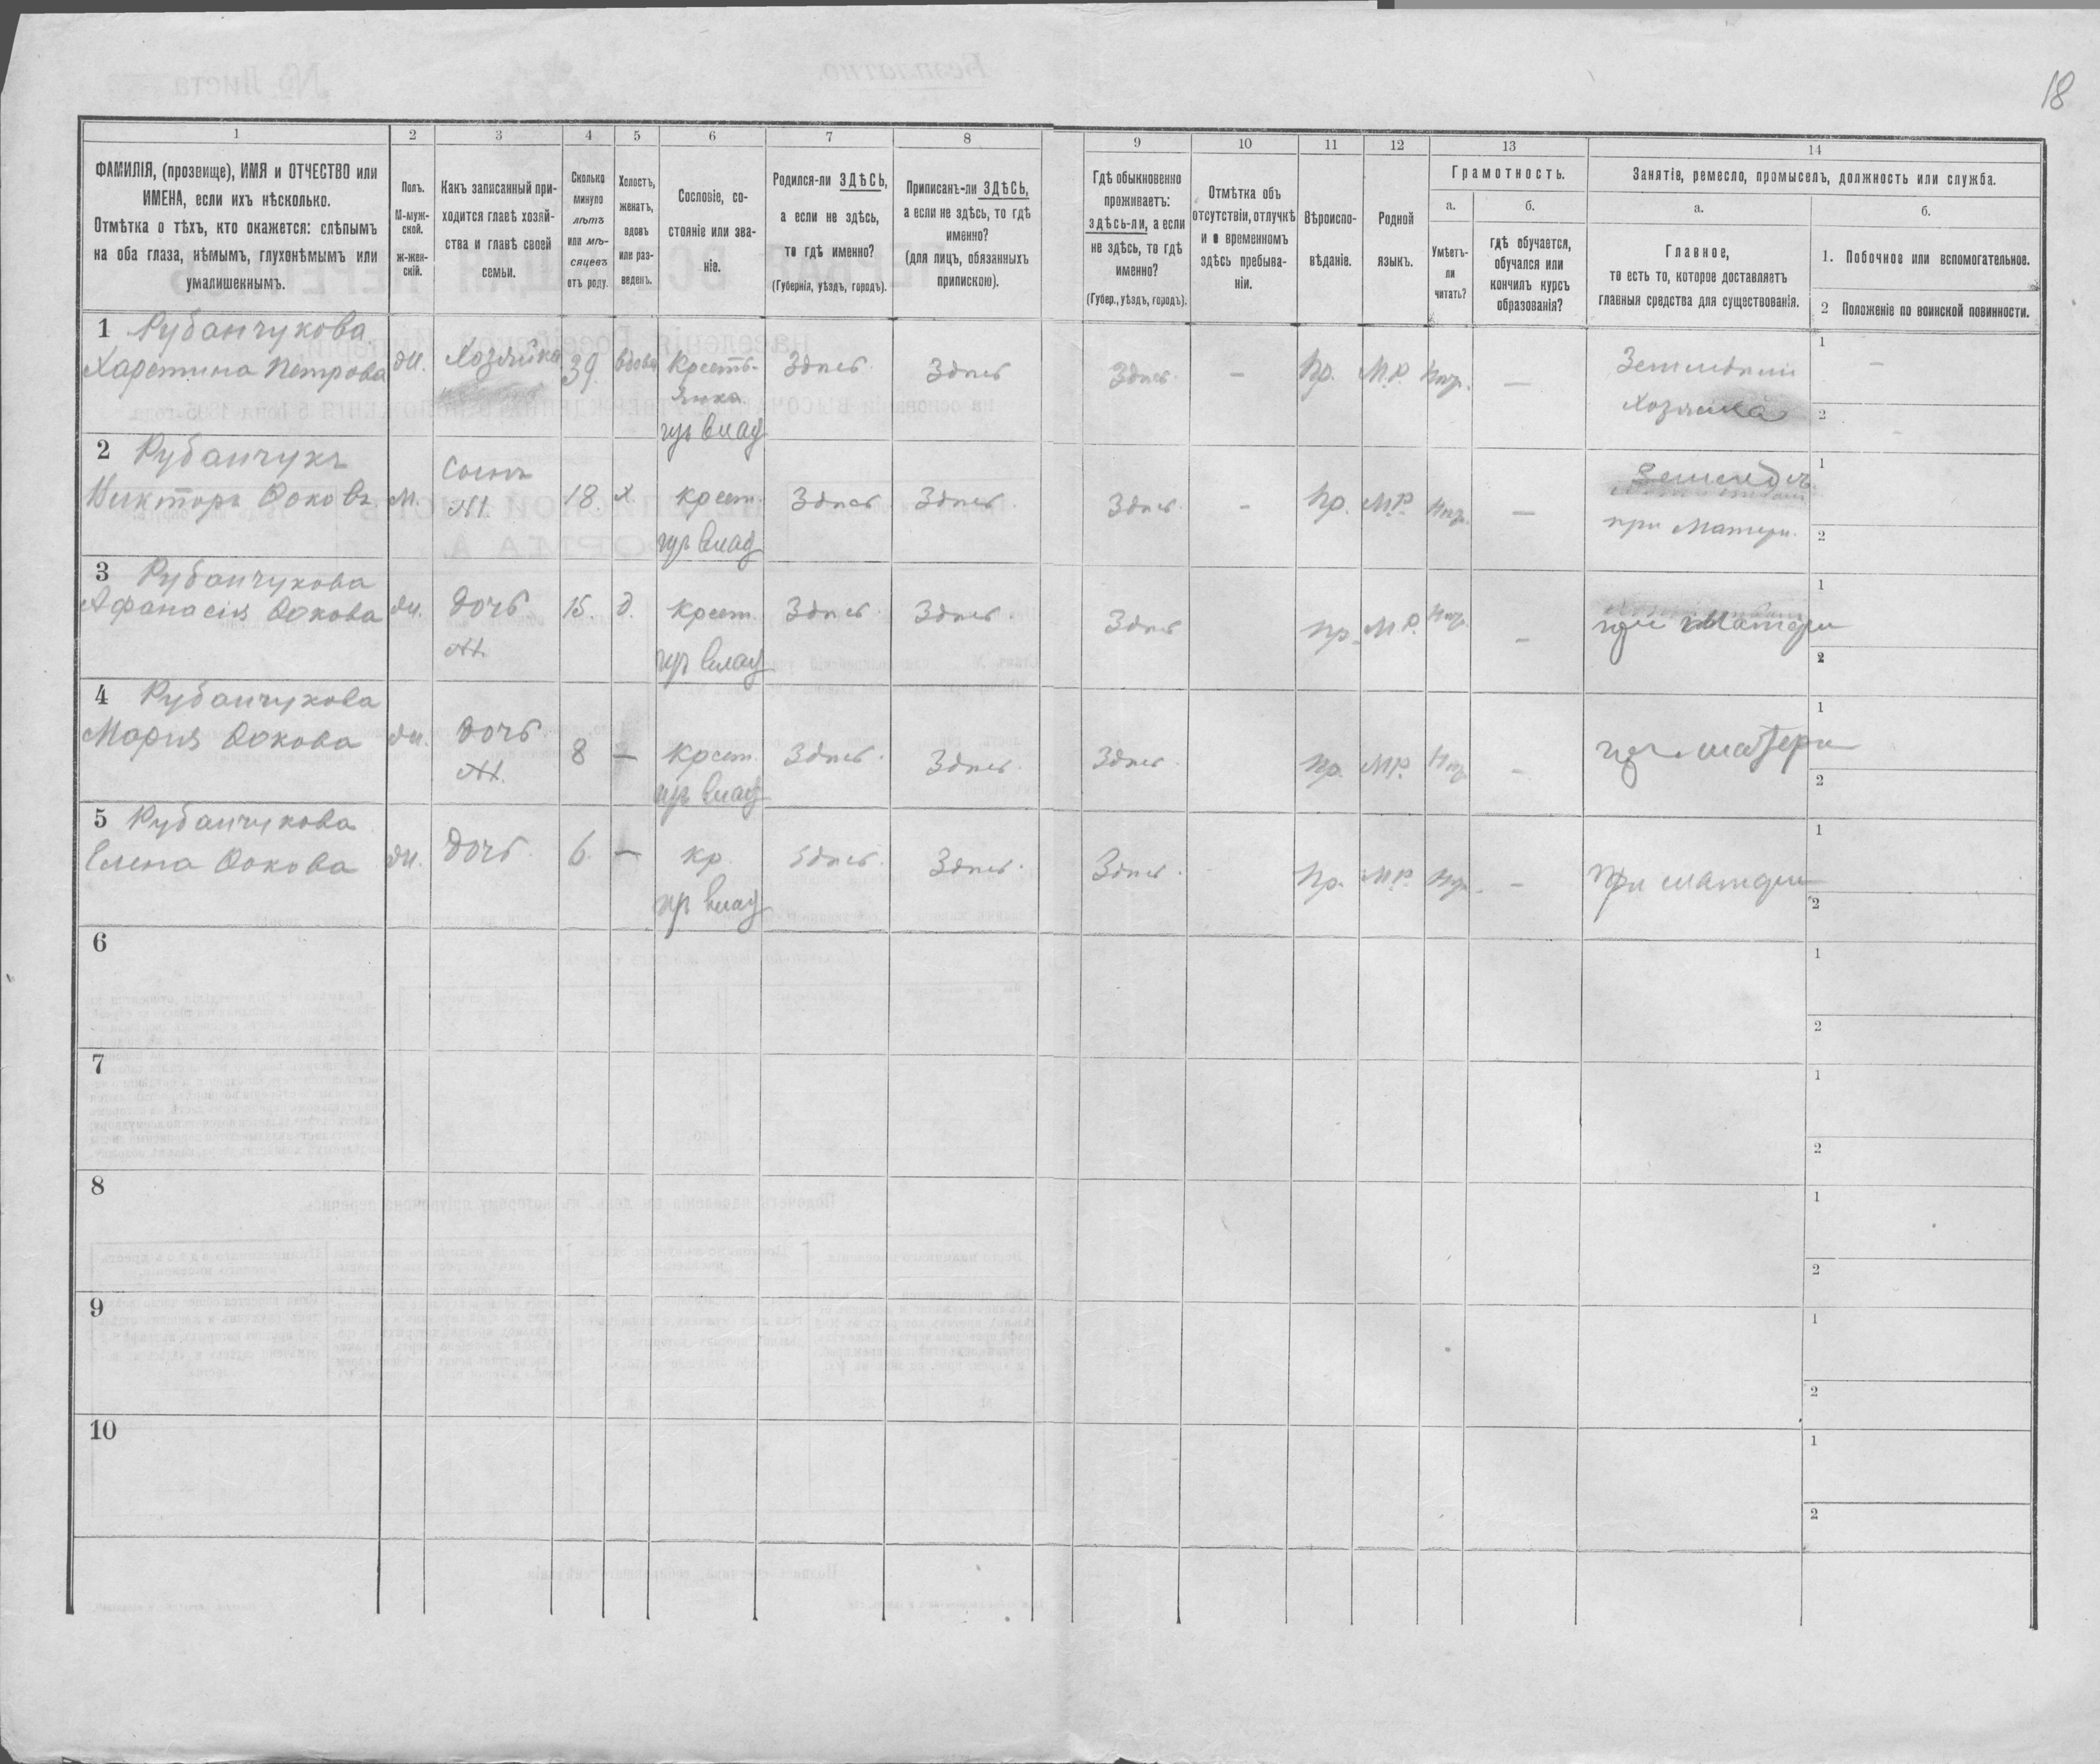 18
1
ФАМИЛІЯ, (прозвище), ИМЯ и ОТЧЕСТВО или
ИМЕНА, если ихъ нѣсколько.
Отмѣтка о тѣхъ, кто окажется: слѣпымъ
на оба глаза, нѣмымъ, глухонѣмымъ или
умалишеннымъ.
2
Полъ.
М-муж-
ской.
ж-жен-
скій.
3
Какъ записанный при-
ходится главѣ хозяй-
ства и главѣ своей
семьи.
4
Сколько
минуло
лѣтъ
или мѣ-
сяцевъ
отъ роду.
5
Холостъ,
женатъ,
вдовъ
или раз-
веденъ.
6
Сословіе, со-
стояніе или зва-
ніе.
7
Родился-ли ЗДѢСЬ,
а если не здѣсь,
то гдѣ именно?
(Губернія, уѣздъ, городъ).
8
Приписанъ-ли ЗДѢСЬ,
а если не здѣсь, то гдѣ
именно?
(для лицъ, обязанныхъ
припискою).
9
Гдѣ обыкновенно
проживаетъ:
здѣсь-ли, а если
не здѣсь, то гдѣ
именно?
(Губер., уѣздъ, городъ).
10
Отмѣтка объ
отсутствіи, отлучкѣ
и о временномъ
здѣсь пребыва-
ніи.
11
Вѣроиспо-
вѣданіе.
12
Родной
языкъ.
13
Грамотность.
а.
Умѣетъ-
ли
читать?
б.
гдѣ обучается,
обучался или
кончилъ курсъ
образованія?
14
Занятіе, ремесло, промыселъ, должность или служба.
а.
Главное,
то есть то, которое доставляетъ
главныя средства для существованія.
б.
1. Побочное или вспомогательное.
2 Положеніе по воинской повинности.
1 Рубанчукова
Харетина Петрова жи. Хозяйка 39 вдова Кресть- Здѣсь Здѣсь Здѣсь. - Пр. М.Р. — 1 —
янка
Хозяйка 2
2 Рубанчукъ
Викторъ Фоковъ. М. Сынъ 18. х. крест. Здѣсь Здѣсь. Здѣсь. - Пр. М.Р. — 1
при Матери. 2
3 Рубанчукова
Афанасія Фокова дочь 15. д. крест. Здѣсь. Здѣсь. Здѣсь пр. М.Р. — при Матери 1
2
4 Рубанчукова
Мария Фокова дочь 8 — крест. Здѣсь. Здѣсь. Здѣсь. Пр. М.Р. — при матери 1
2
5 Рубанчукова
Елена Фокова дочь. 6. — кр. Здѣсь. Здѣсь. Здѣсь. Пр. М.Р. — При матери 1
2
6 1
2
7 1
2
8 1
2
9 1
2
10 1
2